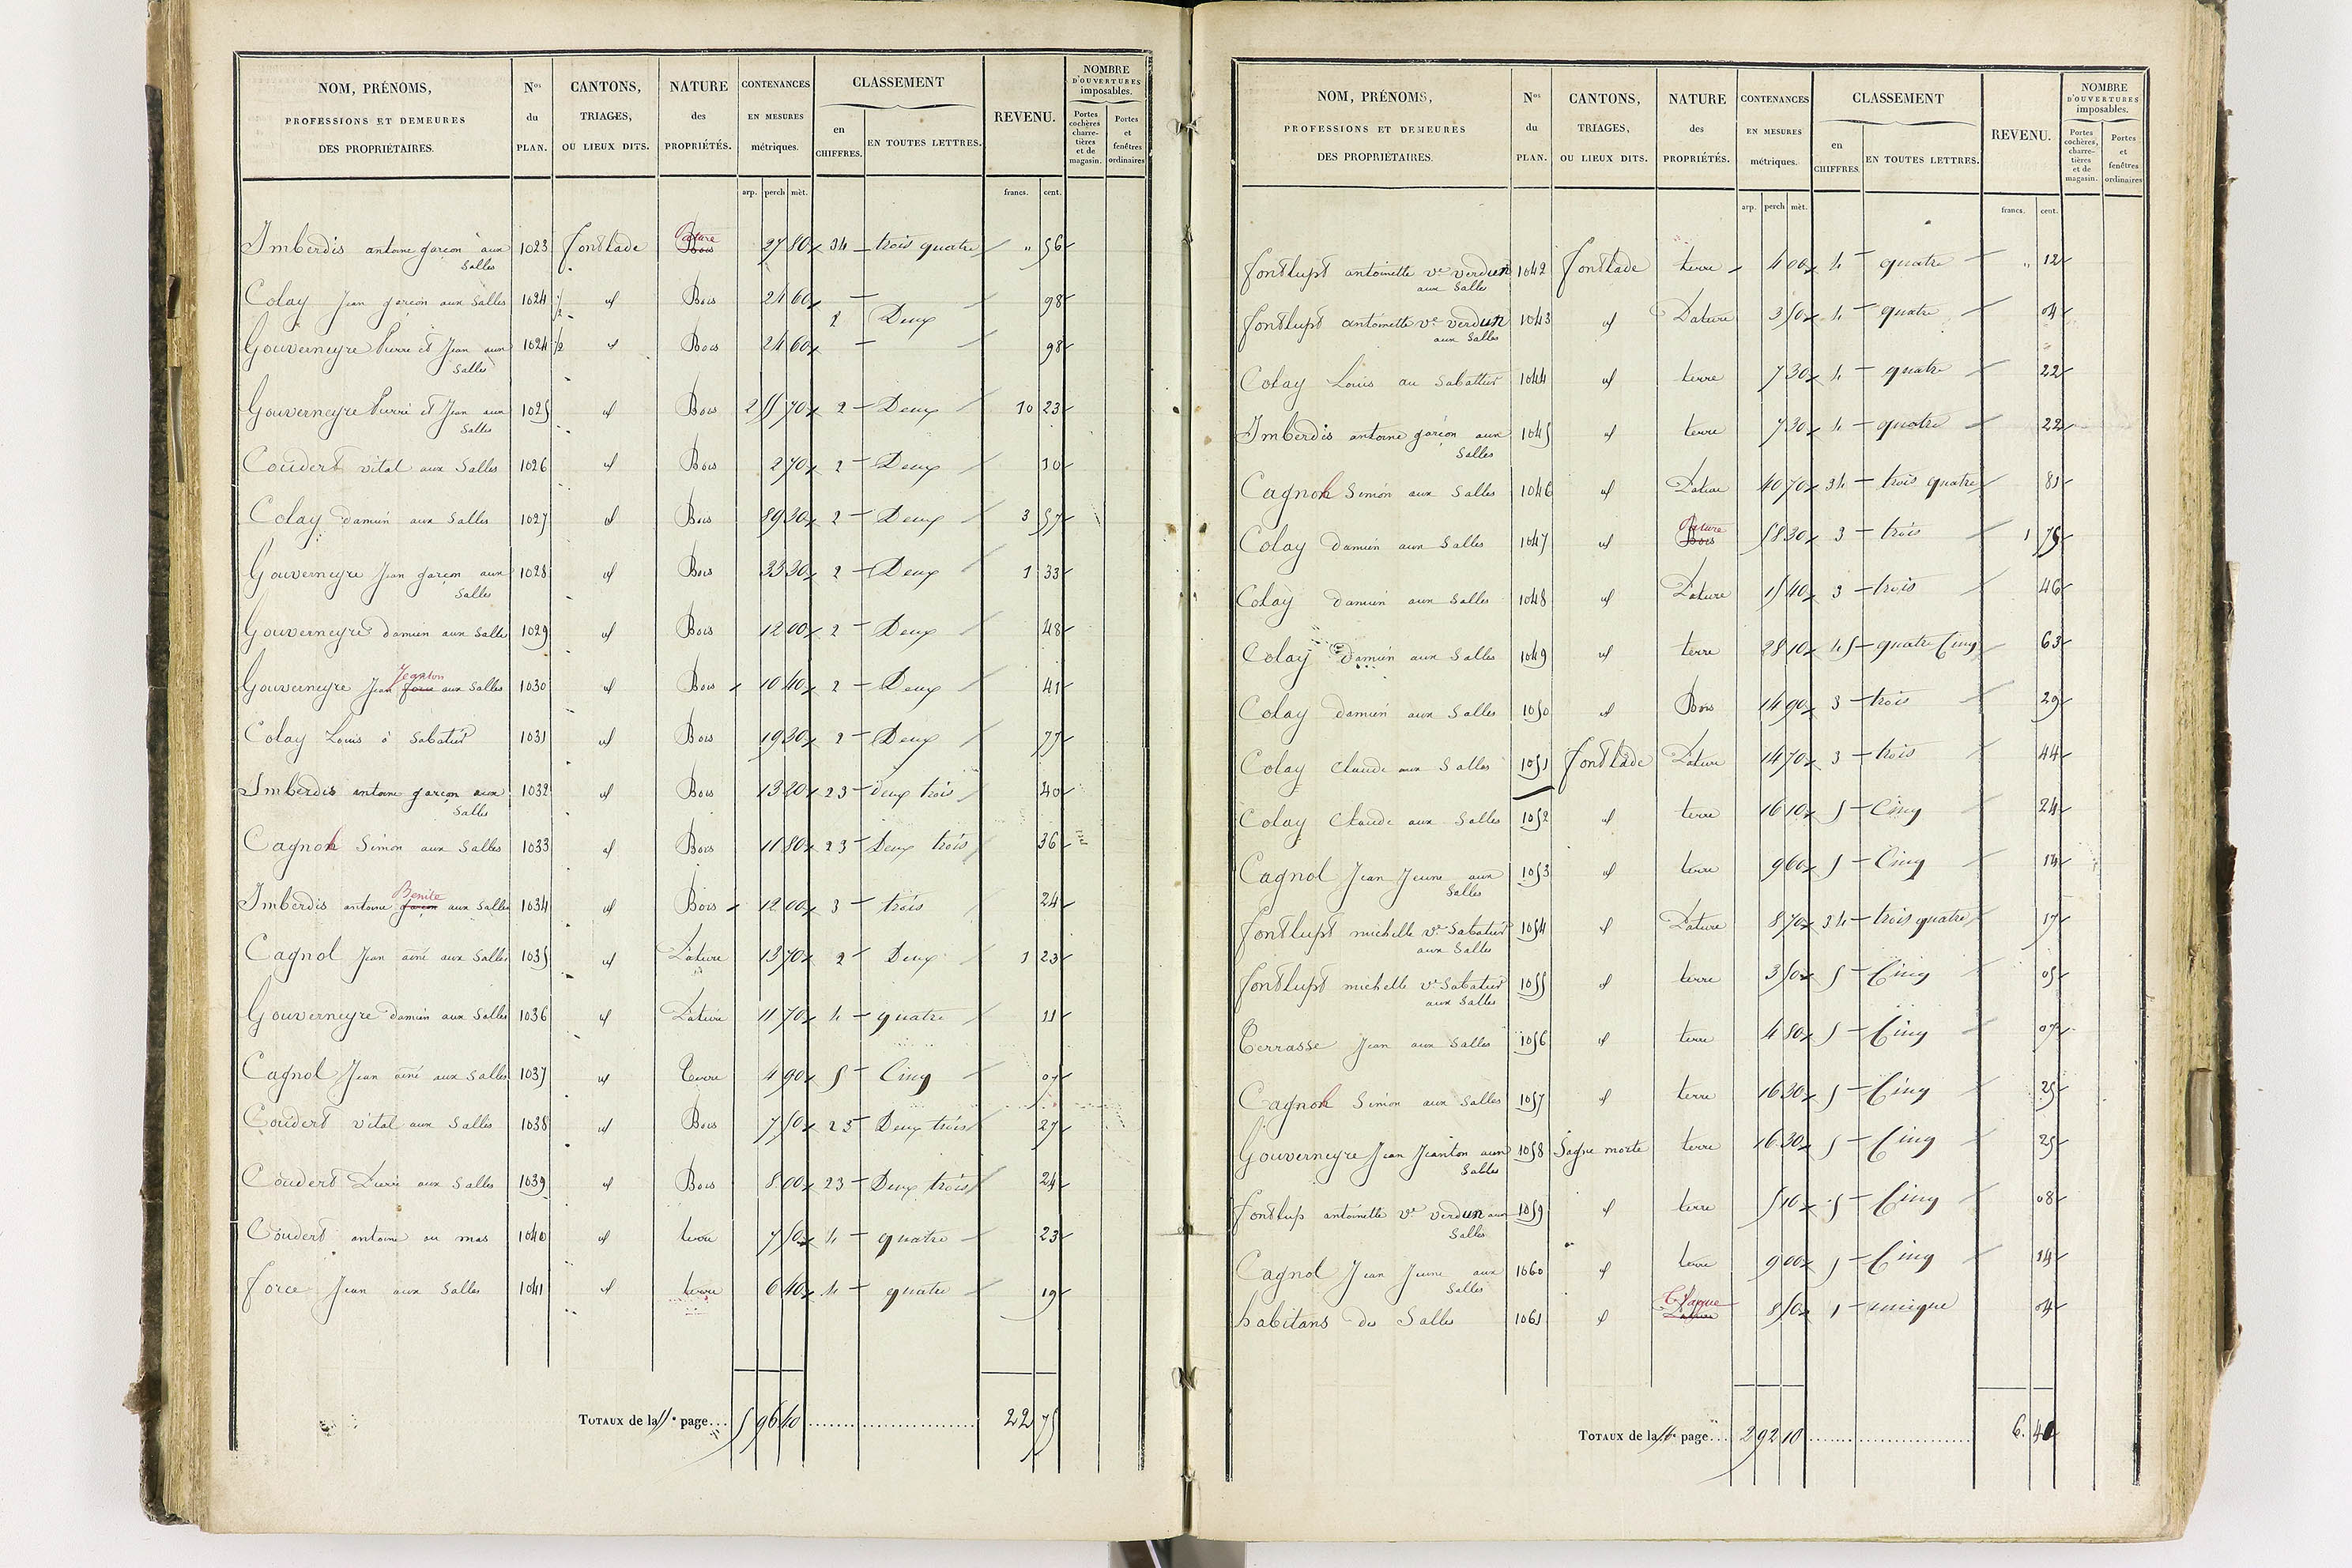 NOM, PRÉNOMS, PROFESSIONS ET DEMEURES DES PROPRIÉTAIRES. Nos du PLAN. CANTONS, TRIAGES, OU LIEUX DITS. NATURE des PROPRIÉTÉS. CONTENANCES EN MESURES métriques. CLASSEMENT en CHIFFRES. EN TOUTES LETTRES. REVENU. NOMBRE D'OUVERTURES imposables. Portes cochères charretières et de magasin. Portes et fenêtres ordinaires
arp. perch mèt. francs. cent.
Imberdis antoine garçon aux Salles 1023 fontlade Bois Pature 27 80 34 trois quatre " 56
Colay Jean garçon aux Salles 1024 1/2 id Bois 24 60 98
2 Deux
Gouverneyre Pierre et Jean aux Salles 1024 1/2 id Bois 24 60 98
Gouverneyre Pierre et Jean aux Salles 1025 id Bois 2 55 70 2 Deux 10 23
Coudert vital aux Salles 1026 id Bois 2 70 2 Deux 10
Colay damien aux Salles 1027 id Bois 89 30 2 Deux 3 57
Gouverneyre Jean garçon aux Salles 1028 id Bois 33 30 2 Deux 1 33
Gouverneyre damien aux Salles 1029 id Bois 12 00 2 Deux 48
Gouverneyre Jean force Jeanton aux Salles 1030 id Bois 10 40 2 Deux 41
Colay Louis à Sabatier 1031 id Bois 19 20 2 Deux 77
Imberdis antoine garçon aux Salles 1032 id Bois 13 20 23 deux trois 40
Cagnol Simon aux Salles 1033 id Bois 11 80 23 Deux trois 36
Imberdis antoine garçon Benite aux Salles 1034 id Bois 12 00 3 trois 24
Cagnol Jean ainé aux Salles 1035 id Pature 13 70 2 Deux 1 23
Gouverneyre damien aux Salles 1036 id Pature 11 70 4 quatre 11
Cagnol Jean ainé aux Salles 1037 id Terre 4 90 5 Cinq 07
Coudert vital aux Salles 1038 id Bois 7 50 23 Deux trois 27
Coudert Pierre aux Salles 1039 id Bois 8 00 23 Deux trois 24
Coudert antoine au mas 1040 id terre 7 50 4 quatre 23
force Jean aux Salles 1041 id terre 6 40 4 quatre 19
TOTAUX de la 55e page... 5 96 40 22 75
NOM, PRÉNOMS, PROFESSIONS ET DEMEURES DES PROPRIÉTAIRES. Nos du PLAN. CANTONS, TRIAGES, OU LIEUX DITS. NATURE des PROPRIÉTÉS. CONTENANCES EN MESURES métriques. CLASSEMENT en CHIFFRES. EN TOUTES LETTRES. REVENU. NOMBRE D'OUVERTURES imposables. Portes cochères, charretières et de magasin. Portes et fenêtres ordinaires
arp. perch mèt. francs. cent.
fontlupt antoinette ve verdun aux Salles 1042 fontlade terre 4 00 4 quatre " 12
fontlupt antoinette ve verdun aux Salles 1043 id Pature 3 50 4 quatre 04
Colay Louis au Sabattier 1044 id terre 7 30 4 quatre 22
Imberdis antoine garçon aux Salles 1045 id terre 7 30 4 quatre 22
Cagnol Simon aux Salles 1046 id Pature 40 70 34 trois quatre 81
Colay damien aux Salles 1047 id Bois Pature 58 30 3 trois 1 75
Colay damien aux Salles 1048 id Pature 15 40 3 trois 46
Colay damien aux Salles 1049 id terre 28 10 45 quatre Cinq 63
Colay damien aux Salles 1050 id Bois 14 90 3 trois 29
Colay Claude aux Salles 1051 fontlade Pature 14 70 3 trois 44
Colay Claude aux Salles 1052 id terre 16 10 5 Cinq 24
Cagnol Jean Jeune aux Salles 1053 id terre 9 60 5 Cinq 14
fontlupt michelle ve Sabatier aux Salles 1054 id Pature 8 70 34 trois quatre 17
fontlupt michelle ve Sabatier aux Salles 1055 id terre 3 50 5 Cinq 05
Terrasse Jean aux Salles 1056 id terre 4 80 5 Cinq 07
Cagnol Simon aux Salles 1057 id terre 16 30 5 Cinq 25
Gouverneyre Jean Jeanton aux Salles 1058 Sagne morte terre 16 30 5 Cinq 25
fontlup antoinette ve verdun aux Salles 1059 id terre 5 10 5 Cinq 08
Cagnol Jean Jeune aux Salles 1060 id terre 9 00 5 Cinq 14
habitans des Salles 1061 id 8 50 1 unique 04
TOTAUX de la 56e page... 2 92 10 6. 40